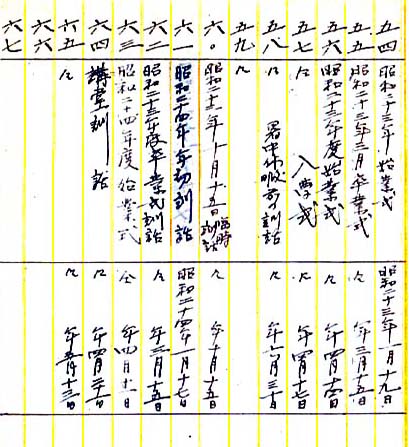 五四 昭和二十三年始業式 昭和二十三年一月十九日
五五 昭和二十三年三月卒業式 〃 年三月十五日
五六 昭和二十三年度始業式 〃 年四月十六日
五七 〃 入学式 〃 年四月十七日
五八 〃 暑中休暇前の訓話 〃 年七月三十日
五九 〃
六〇 昭和二十三年十月十五日 臨時訓話 〃 年十月十五日
六一 昭和二十四年年初訓話 昭和二十四年一月十七日
六二 昭和二十三年度卒業式訓話 〃 年三月十五日
六三 昭和二十四年度始業式 仝 年四月十一日
六四 講堂訓話 〃 年四月三十日
六五 〃 〃 年五月十三日
六六
六七